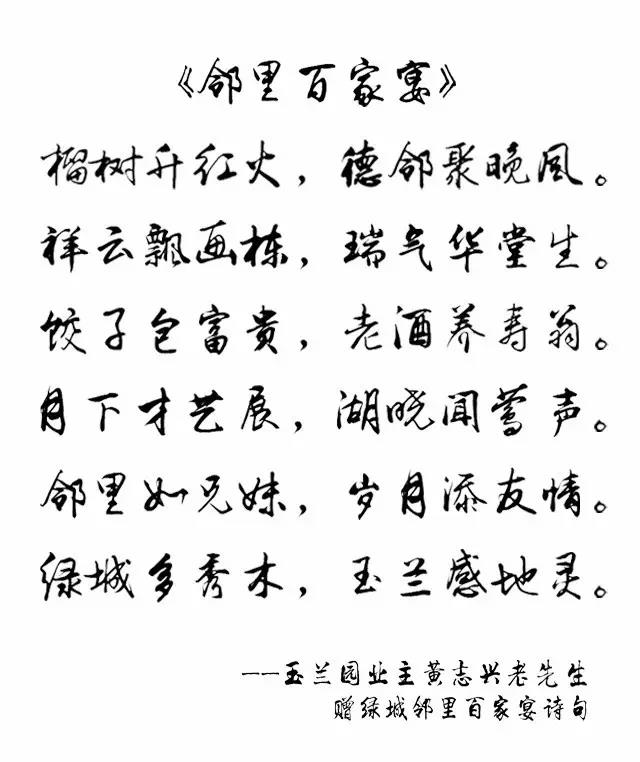 《邻里百家宴》
榴树升红火，德邻聚晚风。
祥云飘画栋，瑞气华堂生。
饺子包富贵，老酒养寿翁。
月下才艺展，湖晓闻莺声。
邻里如兄妹，岁月添友情。
绿城多秀木，玉兰感地灵。
--玉兰园业主黄志兴老先生
赠绿城邻里百家宴诗句